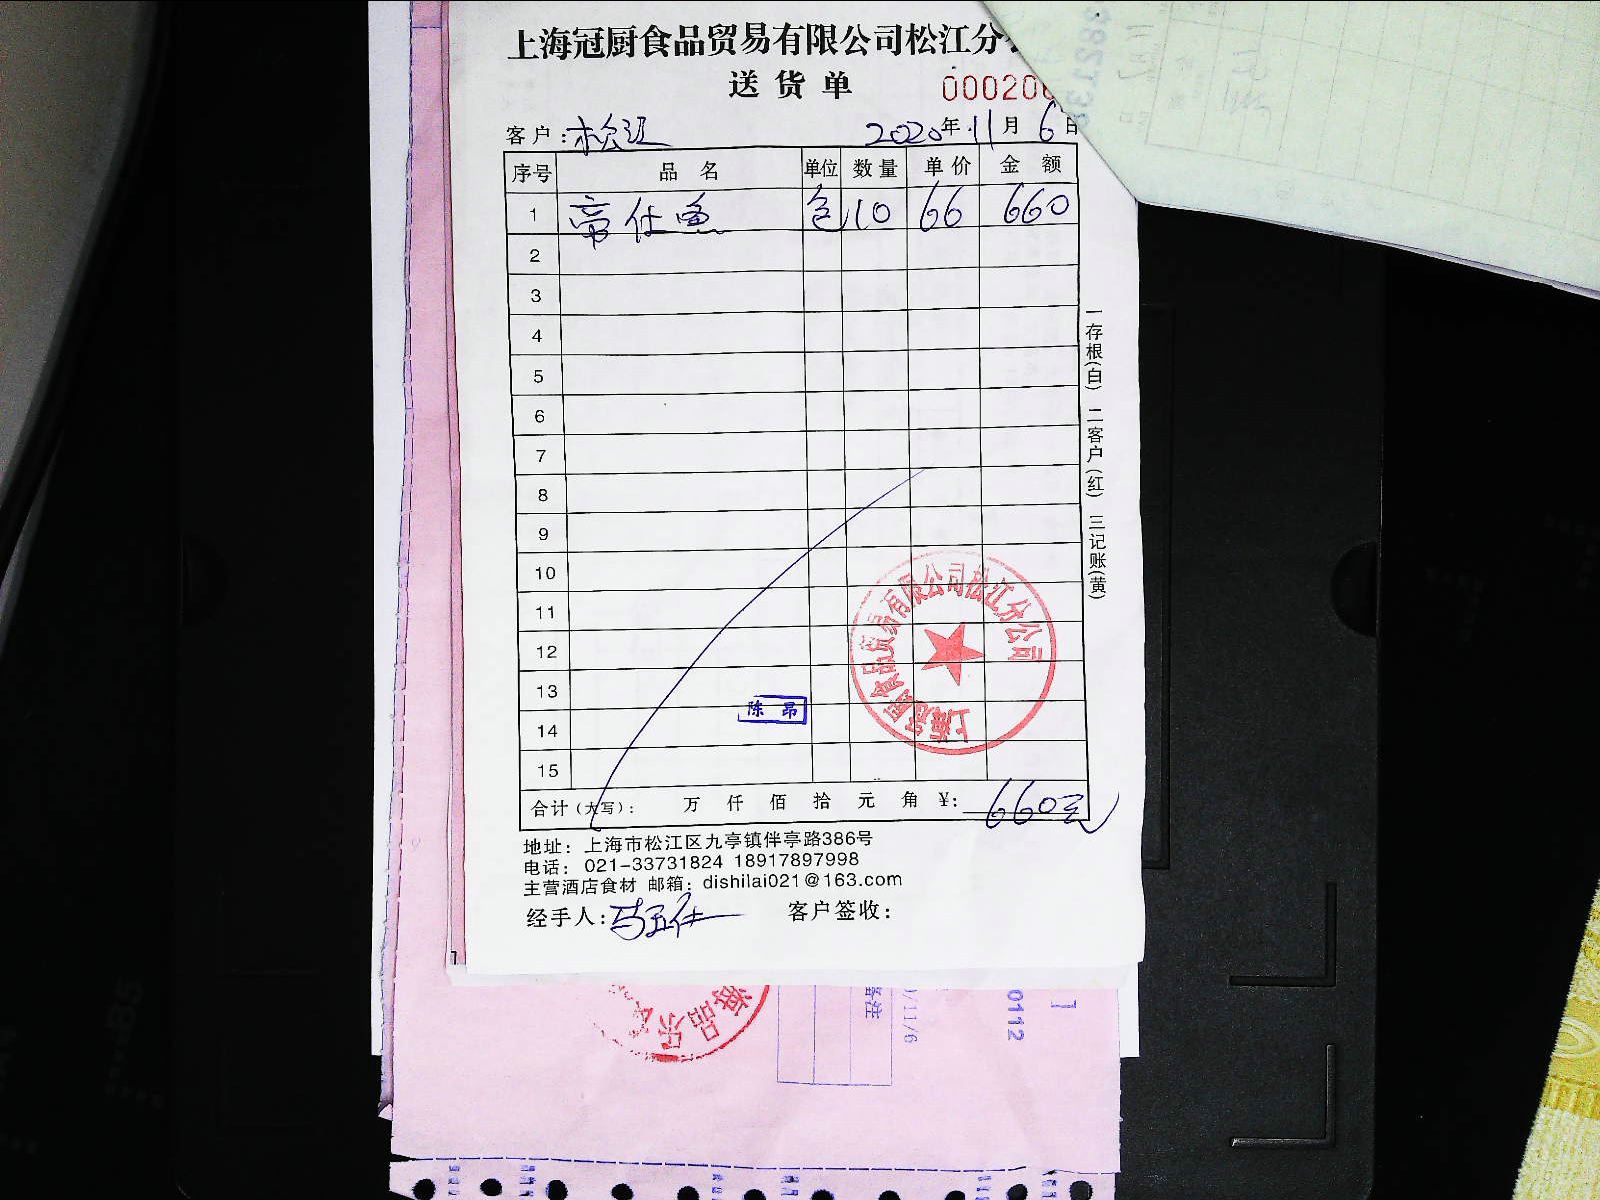 上海冠厨食品贸易有限公司松江分
送货单
00020
客户：松江 2020年11月6日
序号 品名 单位 数量 单价 金额
1 帝仕鱼 包 10 66 660
2
3
4
5
6
7
8
9
10
11
12
13
14
15
陈昂
上海冠厨食品贸易有限公司松江分公司
合计（大写）： 万 仟 佰 拾 元 角 ¥: 660元
地址：上海市松江区九亭镇伴亭路386号
电话：021-33731824 18917897998
主营酒店食材 邮箱：dishilai021@163.com
经手人： 客户签收：
一存根(白) 二客户(红) 三记账(黄)
备注
/11/6
0112